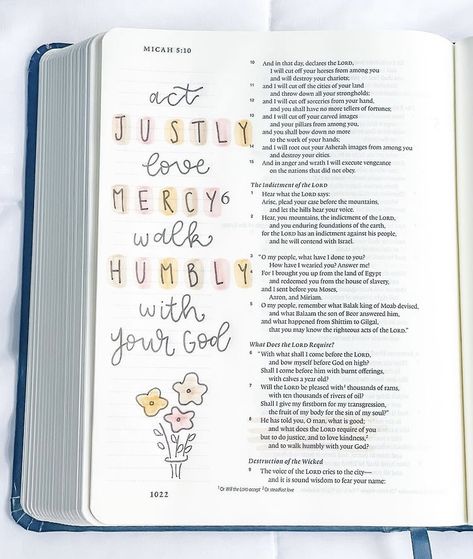 MICAH 5:10
act
JUSTLY
love
MERCY
walk
HUMBLY
with
your God
1022
10 And in that day, declares the LORD,
I will cut off your horses from among you
and will destroy your chariots;
11 and I will cut off the cities of your land
and throw down all your strongholds;
12 and I will cut off sorceries from your hand,
and you shall have no more tellers of fortunes;
13 and I will cut off your carved images
and your pillars from among you,
and you shall bow down no more
to the work of your hands;
14 and I will root out your Asherah images from among you
and destroy your cities.
15 And in anger and wrath I will execute vengeance
on the nations that did not obey.
The Indictment of the LORD
6
1 Hear what the LORD says:
Arise, plead your case before the mountains,
and let the hills hear your voice.
2 Hear, you mountains, the indictment of the LORD,
and you enduring foundations of the earth,
for the LORD has an indictment against his people,
and he will contend with Israel.
3 "O my people, what have I done to you?
How have I wearied you? Answer me!
4 For I brought you up from the land of Egypt
and redeemed you from the house of slavery,
and I sent before you Moses,
Aaron, and Miriam.
5 O my people, remember what Balak king of Moab devised,
and what Balaam the son of Beor answered him,
and what happened from Shittim to Gilgal,
that you may know the righteous acts of the LORD."
What Does the LORD Require?
6 "With what shall I come before the LORD,
and bow myself before God on high?
Shall I come before him with burnt offerings,
with calves a year old?
7 Will the LORD be pleased with¹ thousands of rams,
with ten thousands of rivers of oil?
Shall I give my firstborn for my transgression,
the fruit of my body for the sin of my soul?"
8 He has told you, O man, what is good;
and what does the LORD require of you
but to do justice, and to love kindness,²
and to walk humbly with your God?
Destruction of the Wicked
9 The voice of the LORD cries to the city—
and it is sound wisdom to fear your name:
¹ Or Will the LORD accept ² Or steadfast love